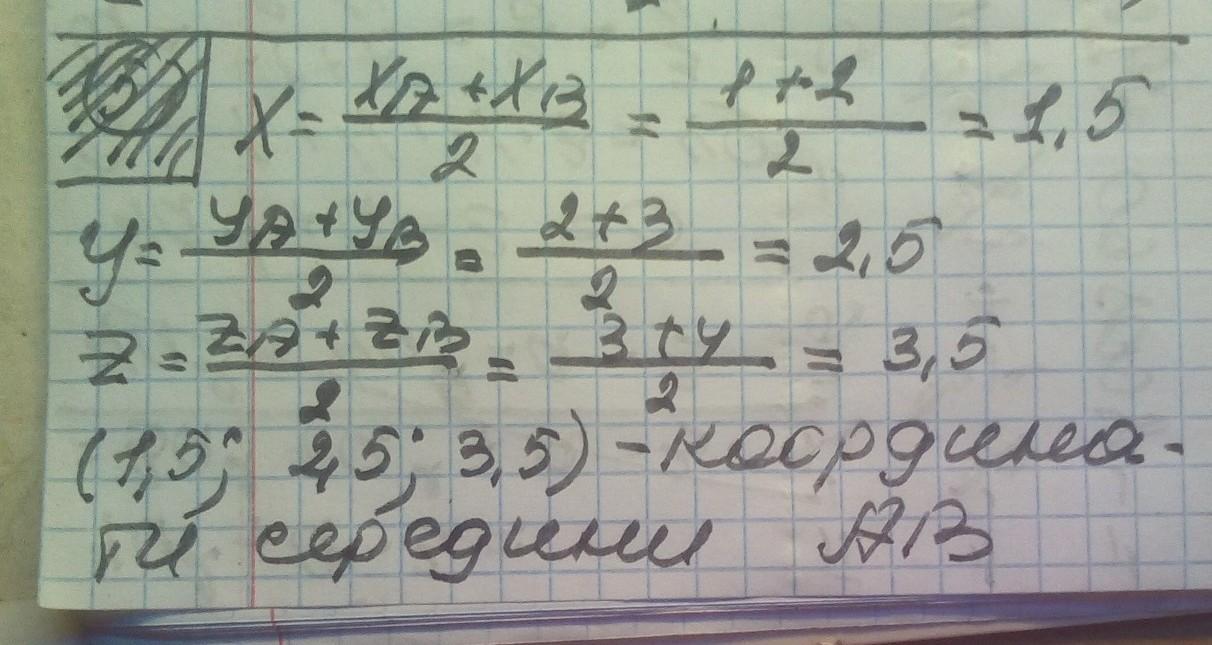 5 X = (X_A + X_B)/2 = (1 + 2)/2 = 1,5
y = (y_A + y_B)/2 = (2 + 3)/2 = 2,5
z = (z_A + z_B)/2 = (3 + 4)/2 = 3,5
(1,5; 2,5; 3,5) - координа-
ти середини AB